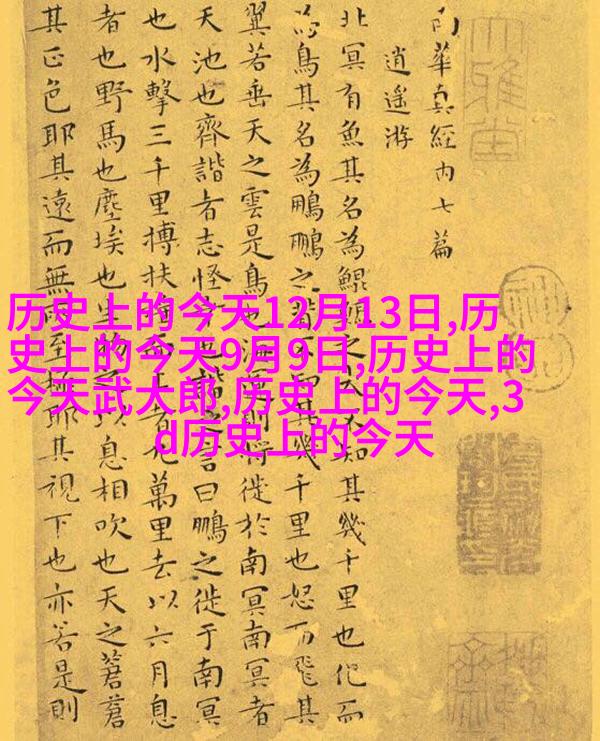 历史上的今天12月13日,历
史上的今天9月9日,历史上的
今天武大郎,历史上的今天,3
d历史上的今天
南華真經內七篇
逍遙游
北冥有魚其名為鯤鯤之大不知其幾千里也化而
為鳥其名為鵬鵬之背不知其幾千里也怒而飛其
翼若垂天之雲是鳥也海運則將徙於南冥南冥者
天池也齊諧者志怪者也諧之言曰鵬之徙于南冥
也水擊三千里搏扶搖而上者九萬里去以六月息
者也野馬也塵埃也生物之以息相吹也天之蒼蒼
其正色耶其遠而無所至極耶其視下也亦若是則